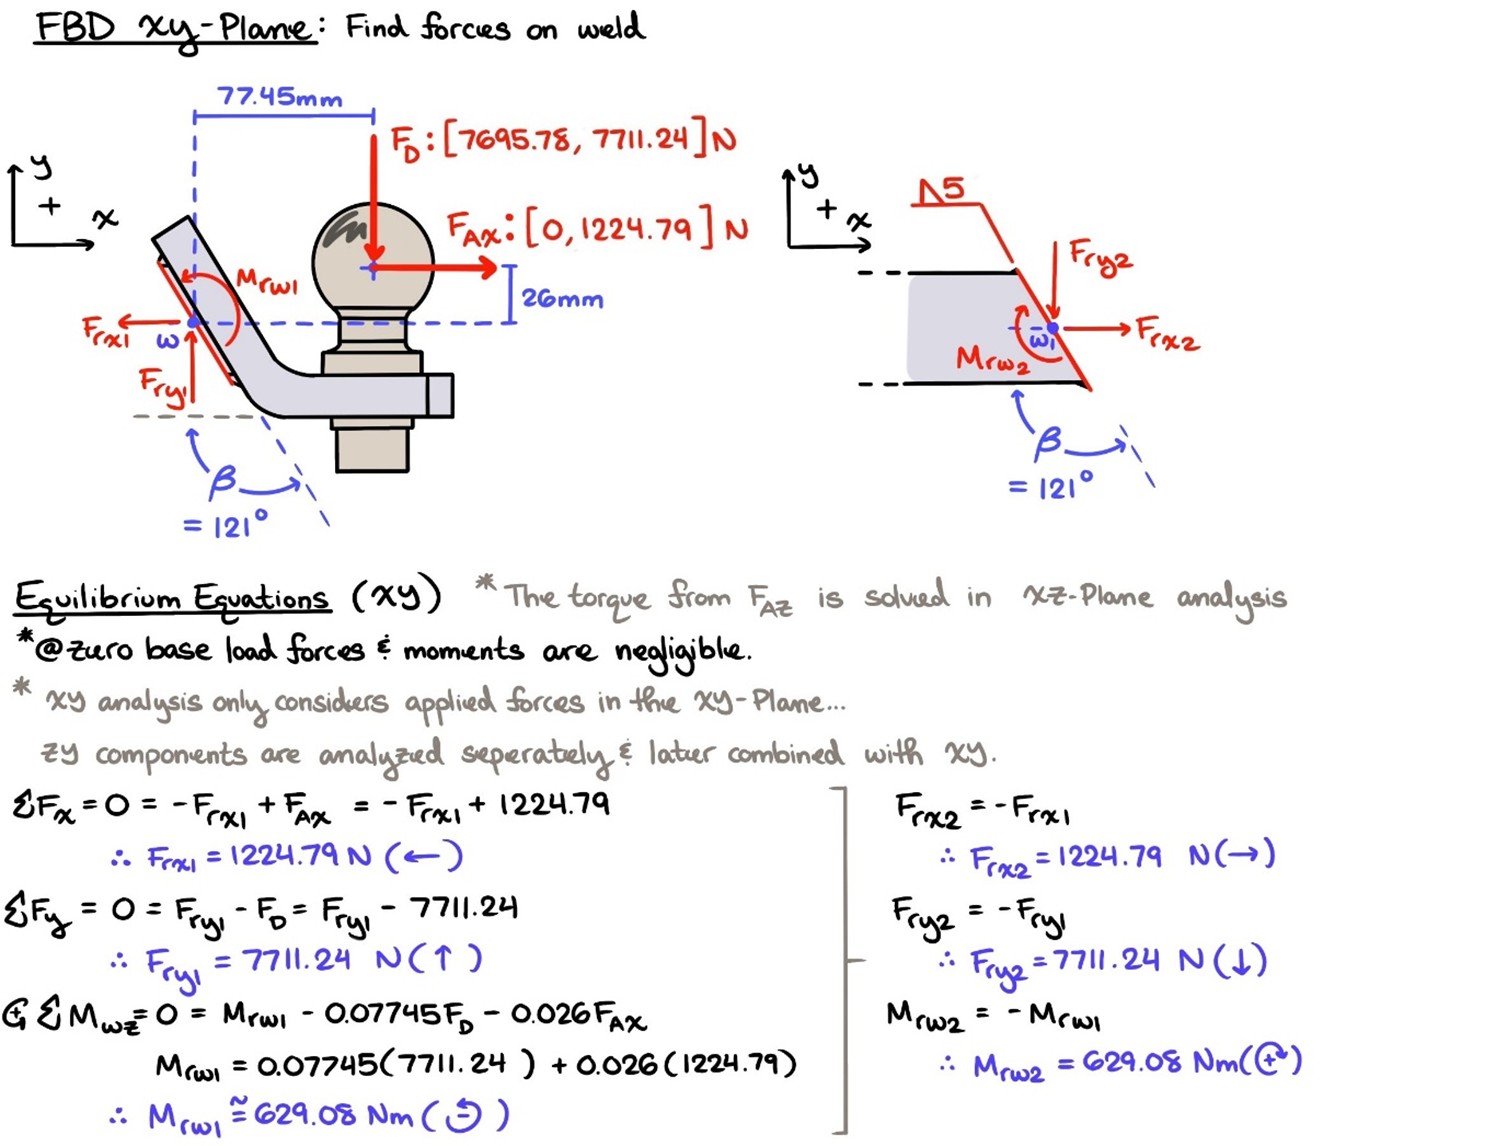 FBD xy-Plane: Find forces on weld
77.45mm
F_D: [7695.78, 7711.24] N
F_AX: [0, 1224.79] N
26mm
y
+
x
M_rw1
F_rx1
w
F_ry1
β
= 121°
y
+ x
5
F_ry2
F_rx2
w₁
M_rw2
β
= 121°
Equilibrium Equations (xy) * The torque from F_AZ is solved in xz-Plane analysis
*@zero base load forces & moments are negligible.
* xy analysis only considers applied forces in the xy-Plane...
zy components are analyzed seperately & later combined with xy.
ΣF_x = 0 = -F_rx1 + F_AX = -F_rx1 + 1224.79
∴ F_rx1 = 1224.79 N (←)
ΣF_y = 0 = F_ry1 - F_D = F_ry1 - 7711.24
∴ F_ry1 = 7711.24 N (↑)
↺+ ΣM_wz = 0 = M_rw1 - 0.07745F_D - 0.026F_AX
M_rw1 = 0.07745(7711.24) + 0.026(1224.79)
∴ M_rw1 ≅ 629.08 Nm (↺)
F_rx2 = -F_rx1
∴ F_rx2 = 1224.79 N(→)
F_ry2 = -F_ry1
∴ F_ry2 = 7711.24 N(↓)
M_rw2 = -M_rw1
∴ M_rw2 = 629.08 Nm(↻+)